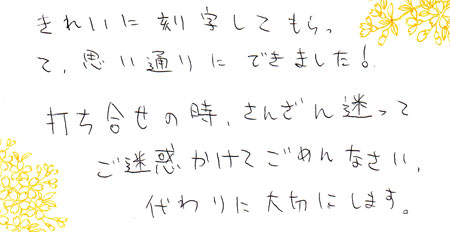 きれいに刻字してもらっ
て、思い通りにできました!
打ち合せの時、さんざん迷って
ご迷惑かけてごめんなさい、
代わりに大切にします。